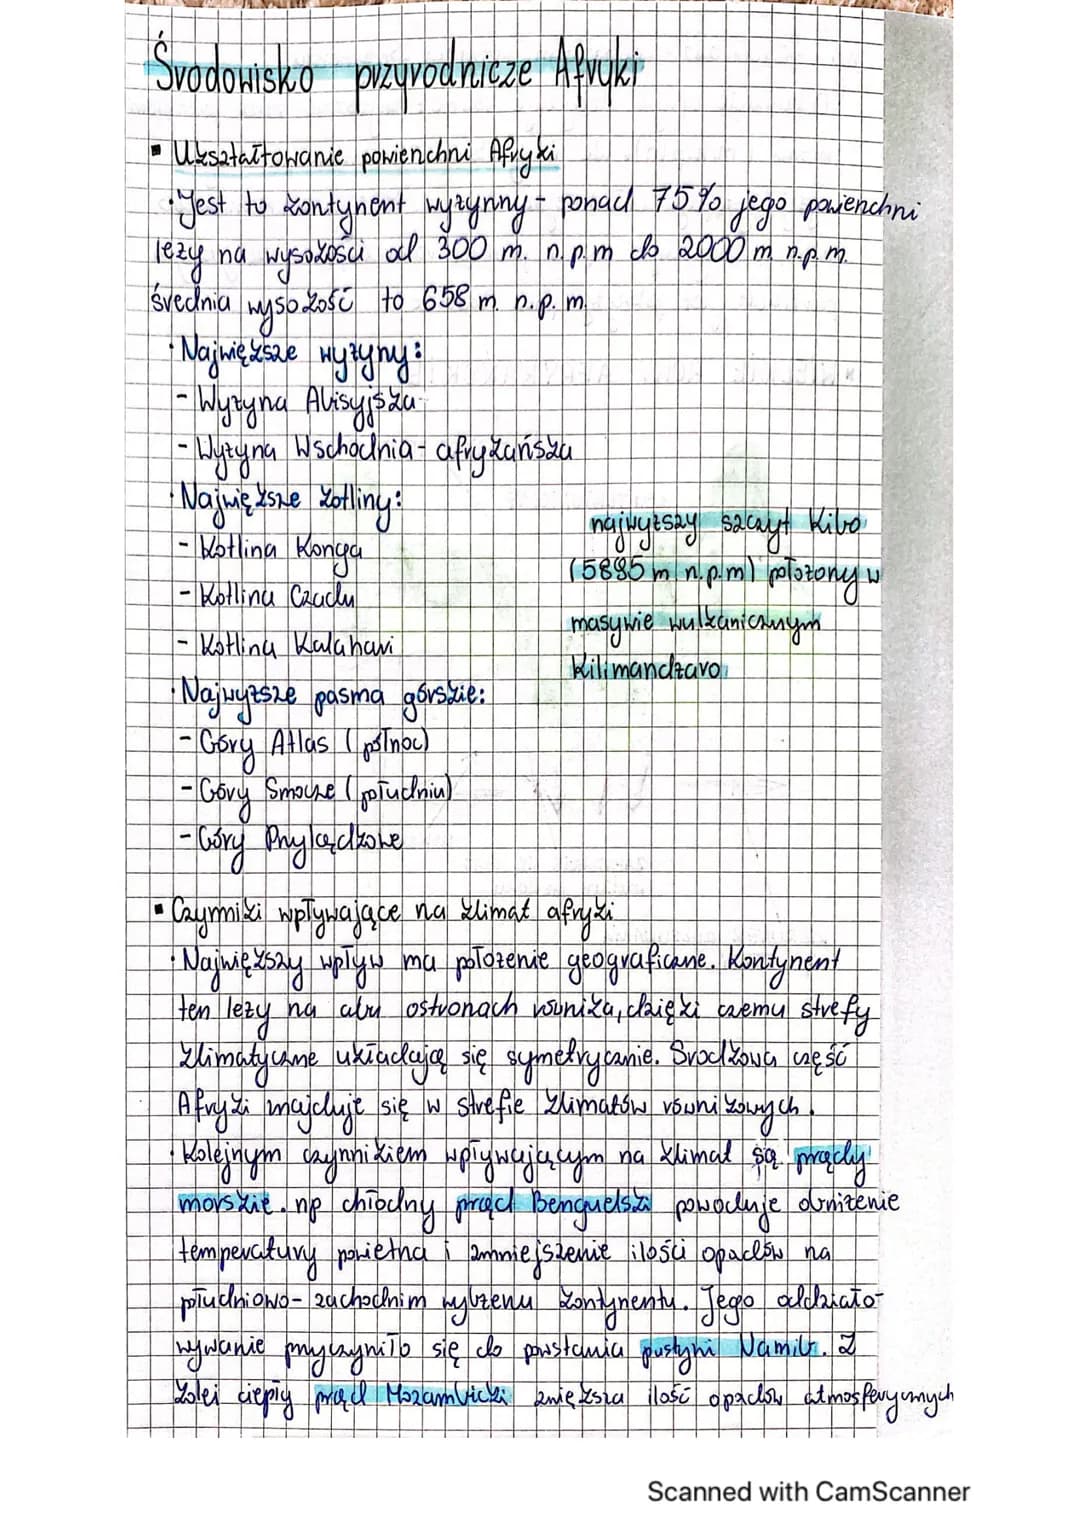 Środowisko przyrodnicze Afryki
▪ Ukształtowanie powierzchni Afryki
· Jest to kontynent wyżynny - ponad 75% jego powierzchni
leży na wysokości od 300 m. n.p.m do 2000 m n.p.m.
średnia wysokość to 658 m n.p.m.
· Największe wyżyny:
- Wyżyna Abisyjska
- Wyżyna Wschodnia - afrykańska
· Największe kotliny:
- Kotlina Konga
- Kotlina Czadu
- Kotlina Kalahari
najwyższy szczyt Kibo
(5895 m n.p.m) położony w
masywie wulkanicznym
Kilimandżaro
· Najwyższe pasma górskie:
- Góry Atlas (północ)
- Góry Smocze (południu)
- Góry Przylądkowe
▪ Czynniki wpływające na klimat afryki
· Największy wpływ ma położenie geograficzne. Kontynent
ten leży na obu ostronach równika, dzięki czemu strefy
klimatyczne układają się symetrycznie. Środkowa część
Afryki znajduje się w strefie klimatów równikowych.
· Kolejnym czynnikiem wpływającym na klimat są prądy
morskie. np chłodny prąd Benguelski powoduje obniżenie
temperatury powietrza i zmniejszenie ilości opadów na
południowo-zachodnim wybrzeżu kontynentu. Jego oddziało-
wywanie przyczyniło się do powstania pustyni Namib. Z
kolei ciepły prąd Mozambicki zwiększa ilość opadów atmosferycznych
Scanned with CamScanner